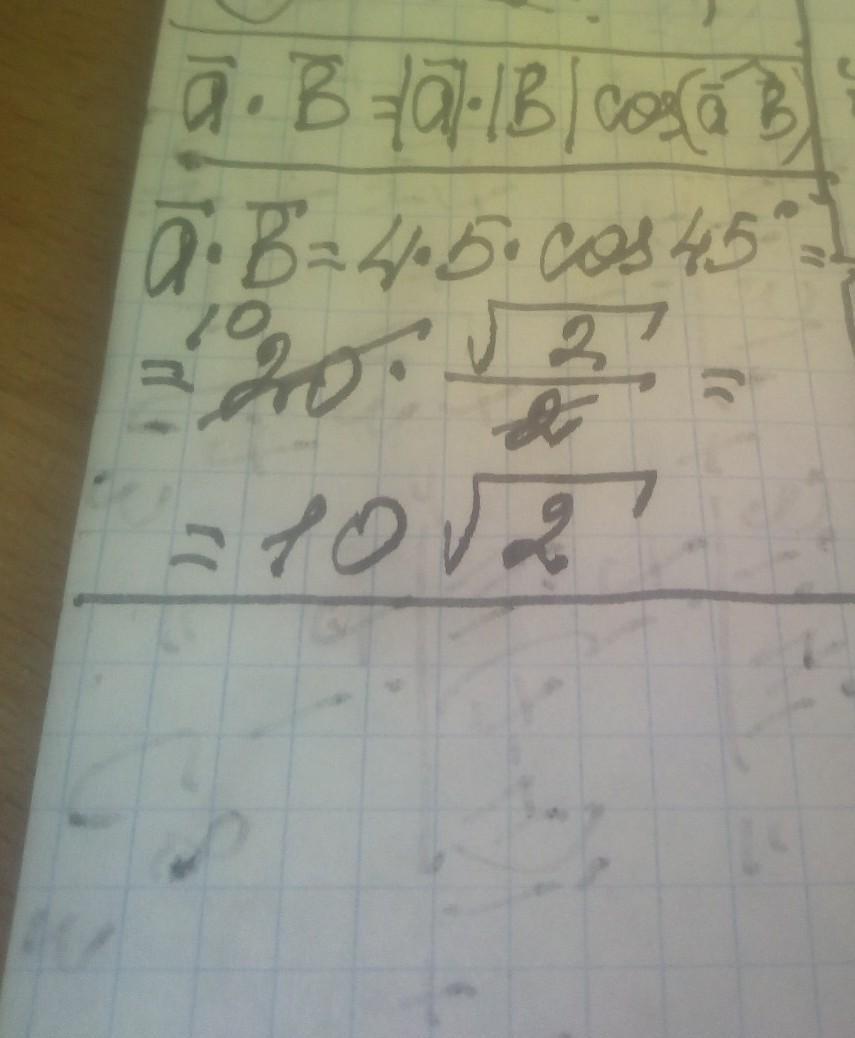 a̅ · B̅ = |a̅| · |B̅| cos(a̅ ^ B̅)
a̅ · B̅ = 4 · 5 · cos 45° =
10
= 20 · √2/2 =
= 10√2